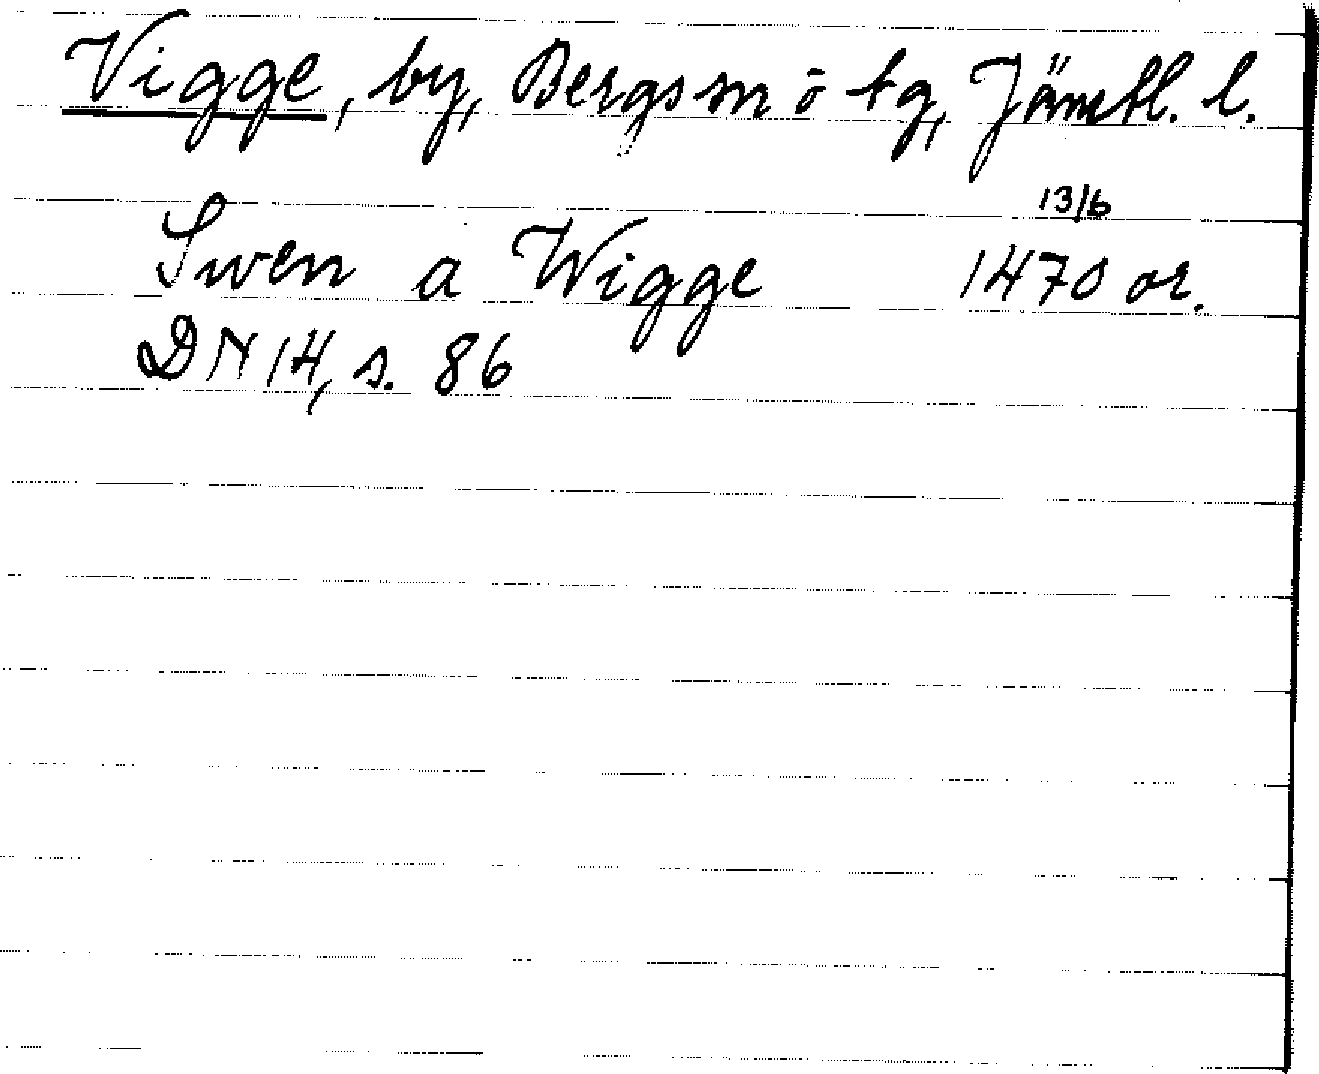 Vigge, by, Bergs sn ö tg, Jämtl. l.
13/6
Swen a Wigge 1470 or.
DN 14, s. 86